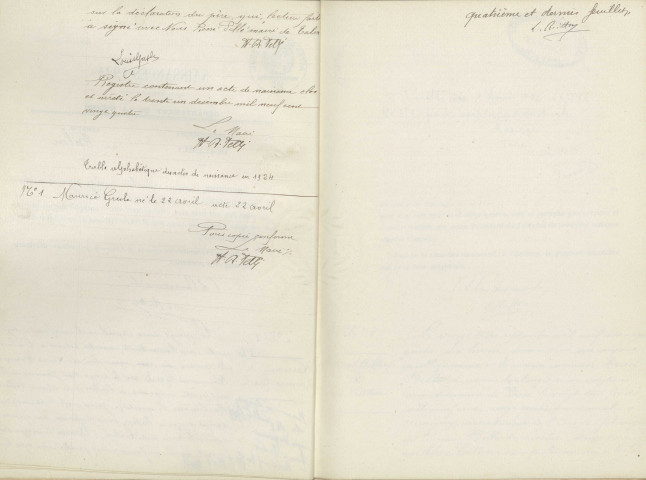 sur la déclaration du père qui, lecture faite
a signé avec Nous maire de
Registre contenant un acte de naissance clos
et arrêté le trente un décembre mil neuf cent
vingt quatre
Le Maire
Table alphabétique des actes de naissance en 1924
N° 1 Maurice né le 22 avril acte 22 avril
Pour copie conforme
Le Maire
quatrième et dernier feuillet